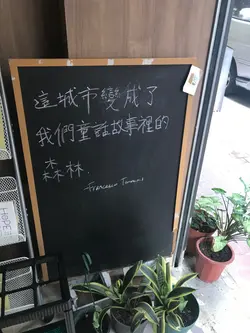 這城市變成了
我們童話故事裡的
森林.
Francesco